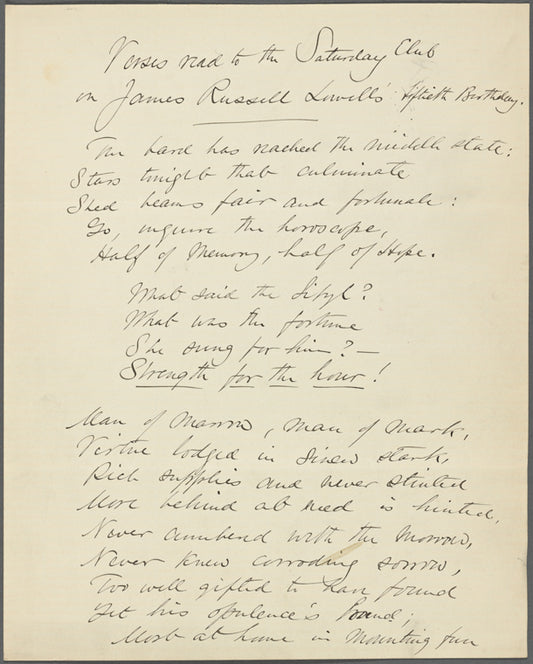 Verses read to the Saturday Club
on James Russell Lowell's fiftieth Birthday.
The bard has reached the middle state:
Stars tonight that culminate
Shed beams fair and fortunate:
Go, inquire the horoscope,
Half of Memory, half of Hope.
What said the Sibyl?
What was the fortune
She sung for him? —
Strength for the hour!
Man of Marrow, man of mark,
Virtue lodged in sinew stark,
Rich supplies and never stinted
More behind at need is hinted,
Never cumbered with the morrow,
Never knew corroding sorrow,
Too well gifted to have found
Yet his opulence's bound;
Most at home in mounting fun